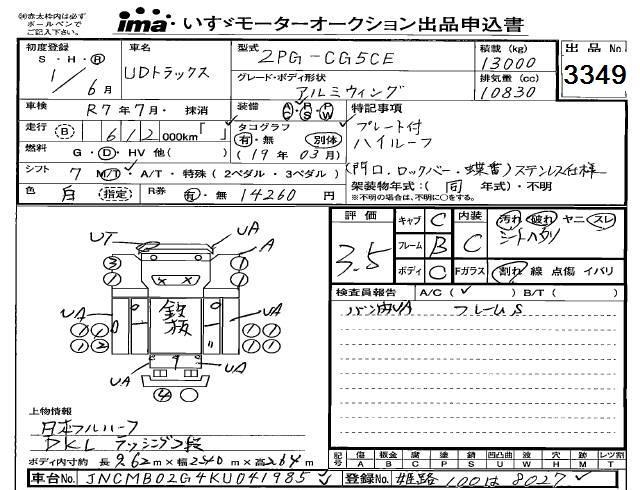 ㊟赤太枠内は必ず
ボールペンで
ご記入下さい。
ima いすゞモーターオークション出品申込書
初度登録
S・H・R
1/6月
車名
UDトラックス
型式
2PG-CG5CE
グレード・ボディ形状
アルミウィング
積載 (kg)
13000
排気量 (cc)
10830
出品No.
3349
車検 R7年7月・抹消
装備 AC PS PW
特記事項
走行 (B) 612 000km「 」
タコグラフ
有・無 別体
(19年03月)
プレート付
ハイルーフ
燃料 G・D・HV 他( )
シフト 7 M/T・A/T・特殊(2ペダル・3ペダル)
(門口.ロックバー・蝶番)ステンレス仕様
架装物年式:(同 年式)・不明
※不明の場合は、不明に○をする。
色 白 指定 R券 有・無 14260 円
評価
3.5
キャブ C
フレーム B
ボディ C
内装 C
Fガラス
汚れ 破れ ヤニ スレ
シートヘタリ
割れ 線 点傷 イバリ
検査員報告 A/C(✓) B/T( )
バン内UA フレームS
UT UA A
3 1
1
UA 鉄板 UA
1 1 1 1
1 2 1 1
9
UA UA
4
上物情報
日本フルハーフ
DKL ラッシング2段
ボディ内寸約 長 962m×幅240m×高264m
記号 傷A 板金B 腐C 塗P 錆S 凹凸曲U 波W 穴H 跡M レツ割T
車台No. JNCMB02G4KU041985
登録No. 姫路100は8027